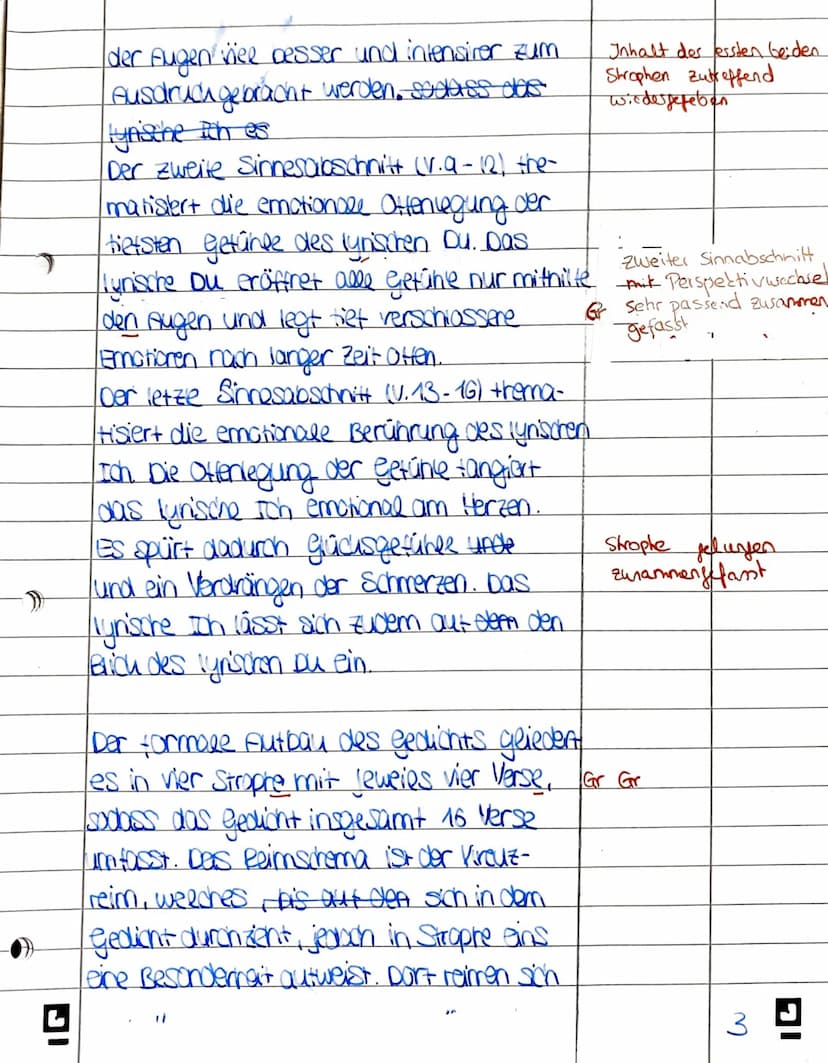 der Augen viel besser und intensiver zum
Ausdruck gebracht werden. sodass das
lyrische Ich es
Der zweite Sinnesabschnitt (V.9-12) the-
matisiert die emotionale Offenlegung der
tiefsten Gefühle des lyrischen Du. Das
lyrische Du eröffnet alle Gefühle nur mithilfe
den Augen und legt tief verschlossene
Emotionen nach langer Zeit offen.
Der letzte Sinnesabschnitt (V.13-16) thema-
tisiert die emotionale Berührung des lyrischen
Ich. Die Offenlegung der Gefühle tangiert
das lyrische Ich emotional am Herzen.
Es spürt dadurch Glücksgefühle unde
und ein Verdrängen der Schmerzen. Das
lyrische Ich lässt sich zudem auf dem den
Blick des lyrischen Du ein.
Der formale Aufbau des Gedichts gliedert
es in vier Strophe mit jeweils vier Verse,
sodass das Gedicht insgesamt 16 Verse
umfasst. Das Reimschema ist der Kreuz-
reim, welches , bis auf den sich in dem
Gedicht durchzieht, jedoch in Strophe eins
eine Besonderheit aufweist. Dort reimen sich
Inhalt der ersten beiden
Strophen zutreffend
wiedergegeben
zweiter Sinnabschnitt
mit Perspektivwechsel
Gr sehr passend zusammen
gefasst
Strophe gelungen
zusammengefasst
Gr Gr
3